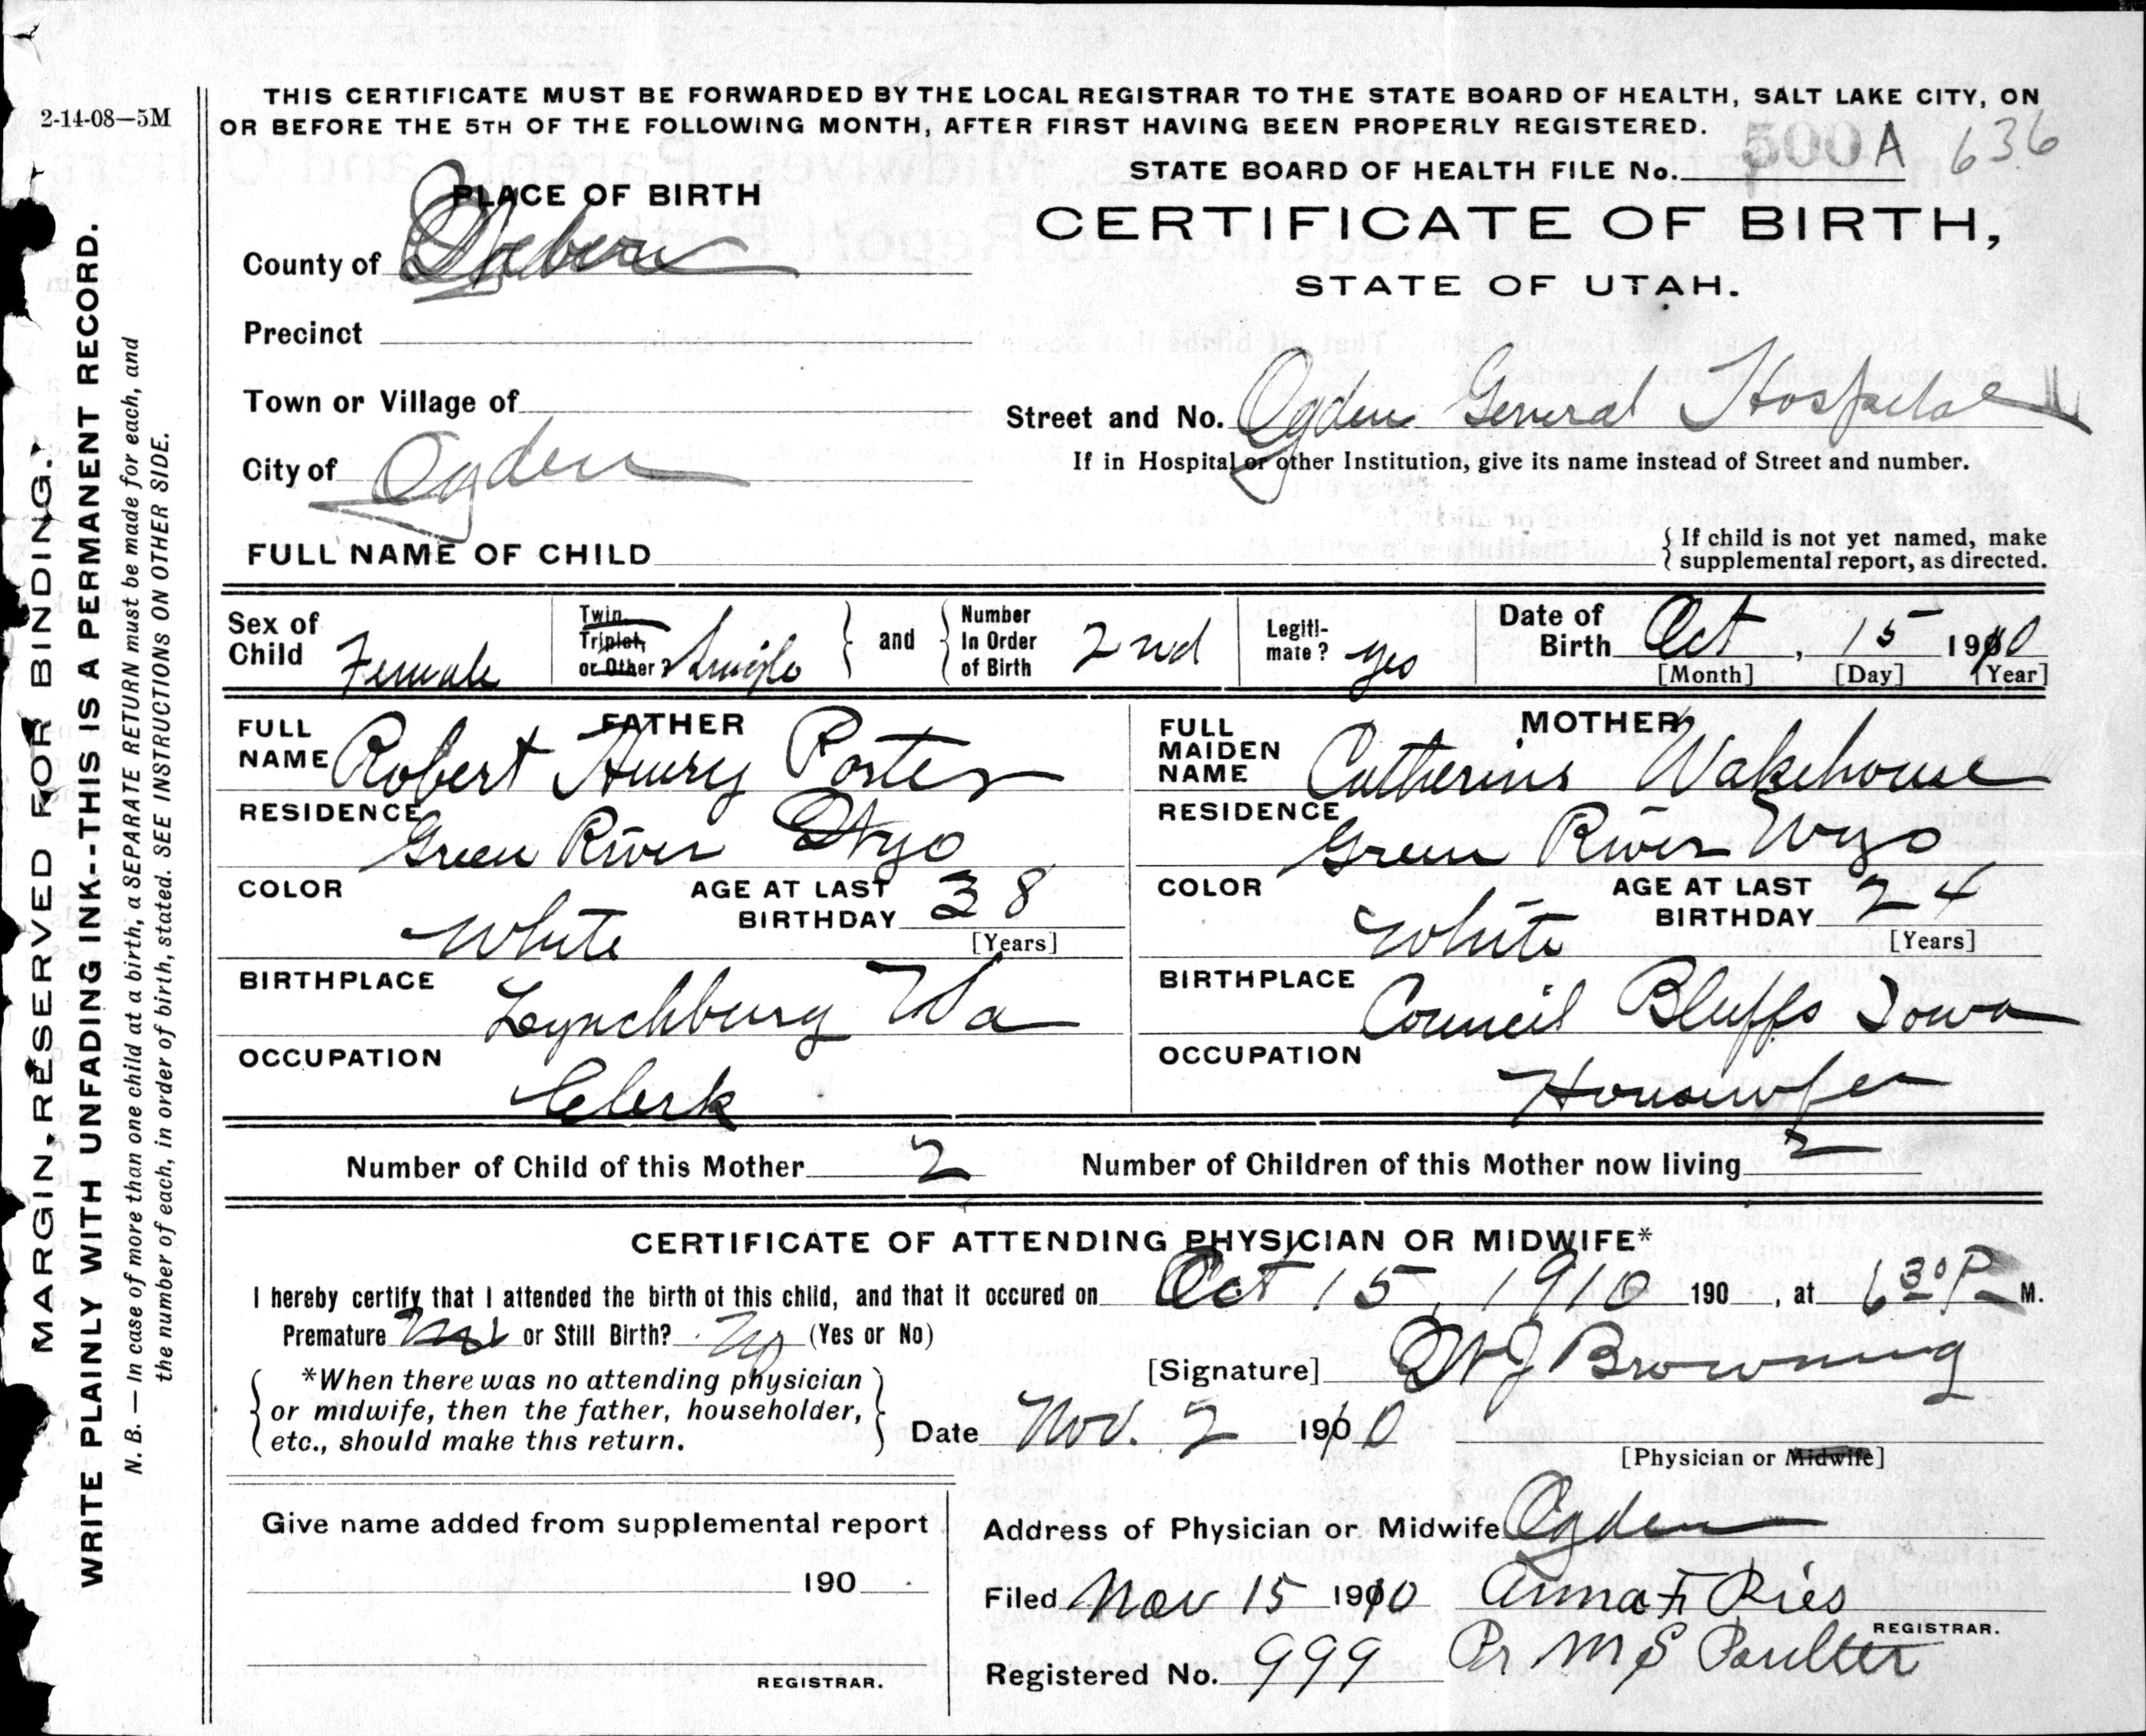 2-14-08—5M
THIS CERTIFICATE MUST BE FORWARDED BY THE LOCAL REGISTRAR TO THE STATE BOARD OF HEALTH, SALT LAKE CITY, ON
OR BEFORE THE 5TH OF THE FOLLOWING MONTH, AFTER FIRST HAVING BEEN PROPERLY REGISTERED.
STATE BOARD OF HEALTH FILE No. 500 A 636
PLACE OF BIRTH
CERTIFICATE OF BIRTH,
STATE OF UTAH.
County of Weber
Precinct
Town or Village of
Street and No. Ogden General Hospital
If in Hospital or other Institution, give its name instead of Street and number.
City of Ogden
FULL NAME OF CHILD
{ If child is not yet named, make
supplemental report, as directed.
Sex of Child Female
Twin, Triplet, or Other? Single } and { Number In Order of Birth 2nd
Legiti-mate? yes
Date of Birth Oct, 15 1910
[Month] [Day] [Year]
FATHER
FULL NAME Robert Henry Porter
RESIDENCE Green River Wyo
COLOR White AGE AT LAST BIRTHDAY 38
[Years]
BIRTHPLACE Lynchburg Va
OCCUPATION Clerk
MOTHER
FULL MAIDEN NAME Catherine Wakehouse
RESIDENCE Green River Wyo
COLOR White AGE AT LAST BIRTHDAY 24
[Years]
BIRTHPLACE Council Bluffs Iowa
OCCUPATION Housewife
Number of Child of this Mother 2 Number of Children of this Mother now living 2
CERTIFICATE OF ATTENDING PHYSICIAN OR MIDWIFE*
I hereby certify that I attended the birth of this child, and that it occured on Oct 15, 1910 190 , at 6 30 P M.
Premature or Still Birth? No (Yes or No)
[Signature] Browning
*When there was no attending physician
or midwife, then the father, householder,
etc., should make this return.
Date Nov. 2 1910
[Physician or Midwife]
Give name added from supplemental report
190
REGISTRAR.
Address of Physician or Midwife Ogden
Filed Nov 15 1910 Anna F Ries
REGISTRAR.
Registered No. 999 Pr M S Poulter
MARGIN RESERVED FOR BINDING.
WRITE PLAINLY WITH UNFADING INK--THIS IS A PERMANENT RECORD.
N. B. — In case of more than one child at a birth, a SEPARATE RETURN must be made for each, and
the number of each, in order of birth, stated. SEE INSTRUCTIONS ON OTHER SIDE.